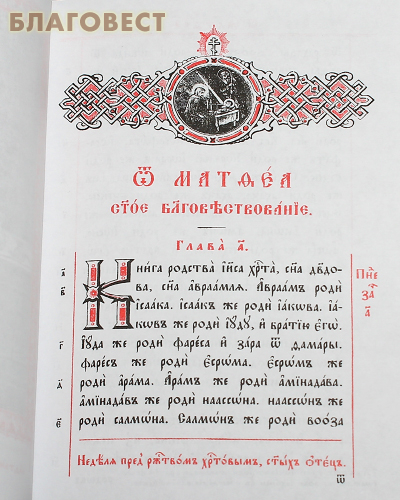 БЛАГОВЕСТ
Ѿ МАТѲЕ́А
СТ҃О́Е БЛ҃ГОВѢ́СТВОВАНЇЕ.
ГЛАВА̀ А҃.
Кни́га родства̀ і҆и҃са хрⷭ҇та̀, сн҃а дв҃до-
а҃ ва, сн҃а а҆враа́млѧ. А҆враа́мъ родѝ
в҃ і҆саа́ка. і҆саа́къ же родѝ і҆а́кѡва. і҆а́-
кѡвъ же родѝ і҆ꙋ́дꙋ, и҆ бра́тїю є҆гѡ̀.
г҃ І҆ꙋ́да же родѝ фаре́са и҆ за́ра ѿ ѳама́ры.
фаре́съ же родѝ є҆срѡ́ма. є҆срѡ́мъ же
д҃ родѝ а҆ра́ма. А҆ра́мъ же родѝ а҆мїнада́ва.
а҆мїнада́въ же родѝ наассѡ́на. наассѡ́нъ же
є҃ родѝ салмѡ́на. Салмѡ́нъ же родѝ воо́за
Недѣ́лѧ пред̾ рж҇тво́мъ хрⷭ҇то́вымъ, ст҃ы́хъ ѻ҆те́цъ.
ѿ